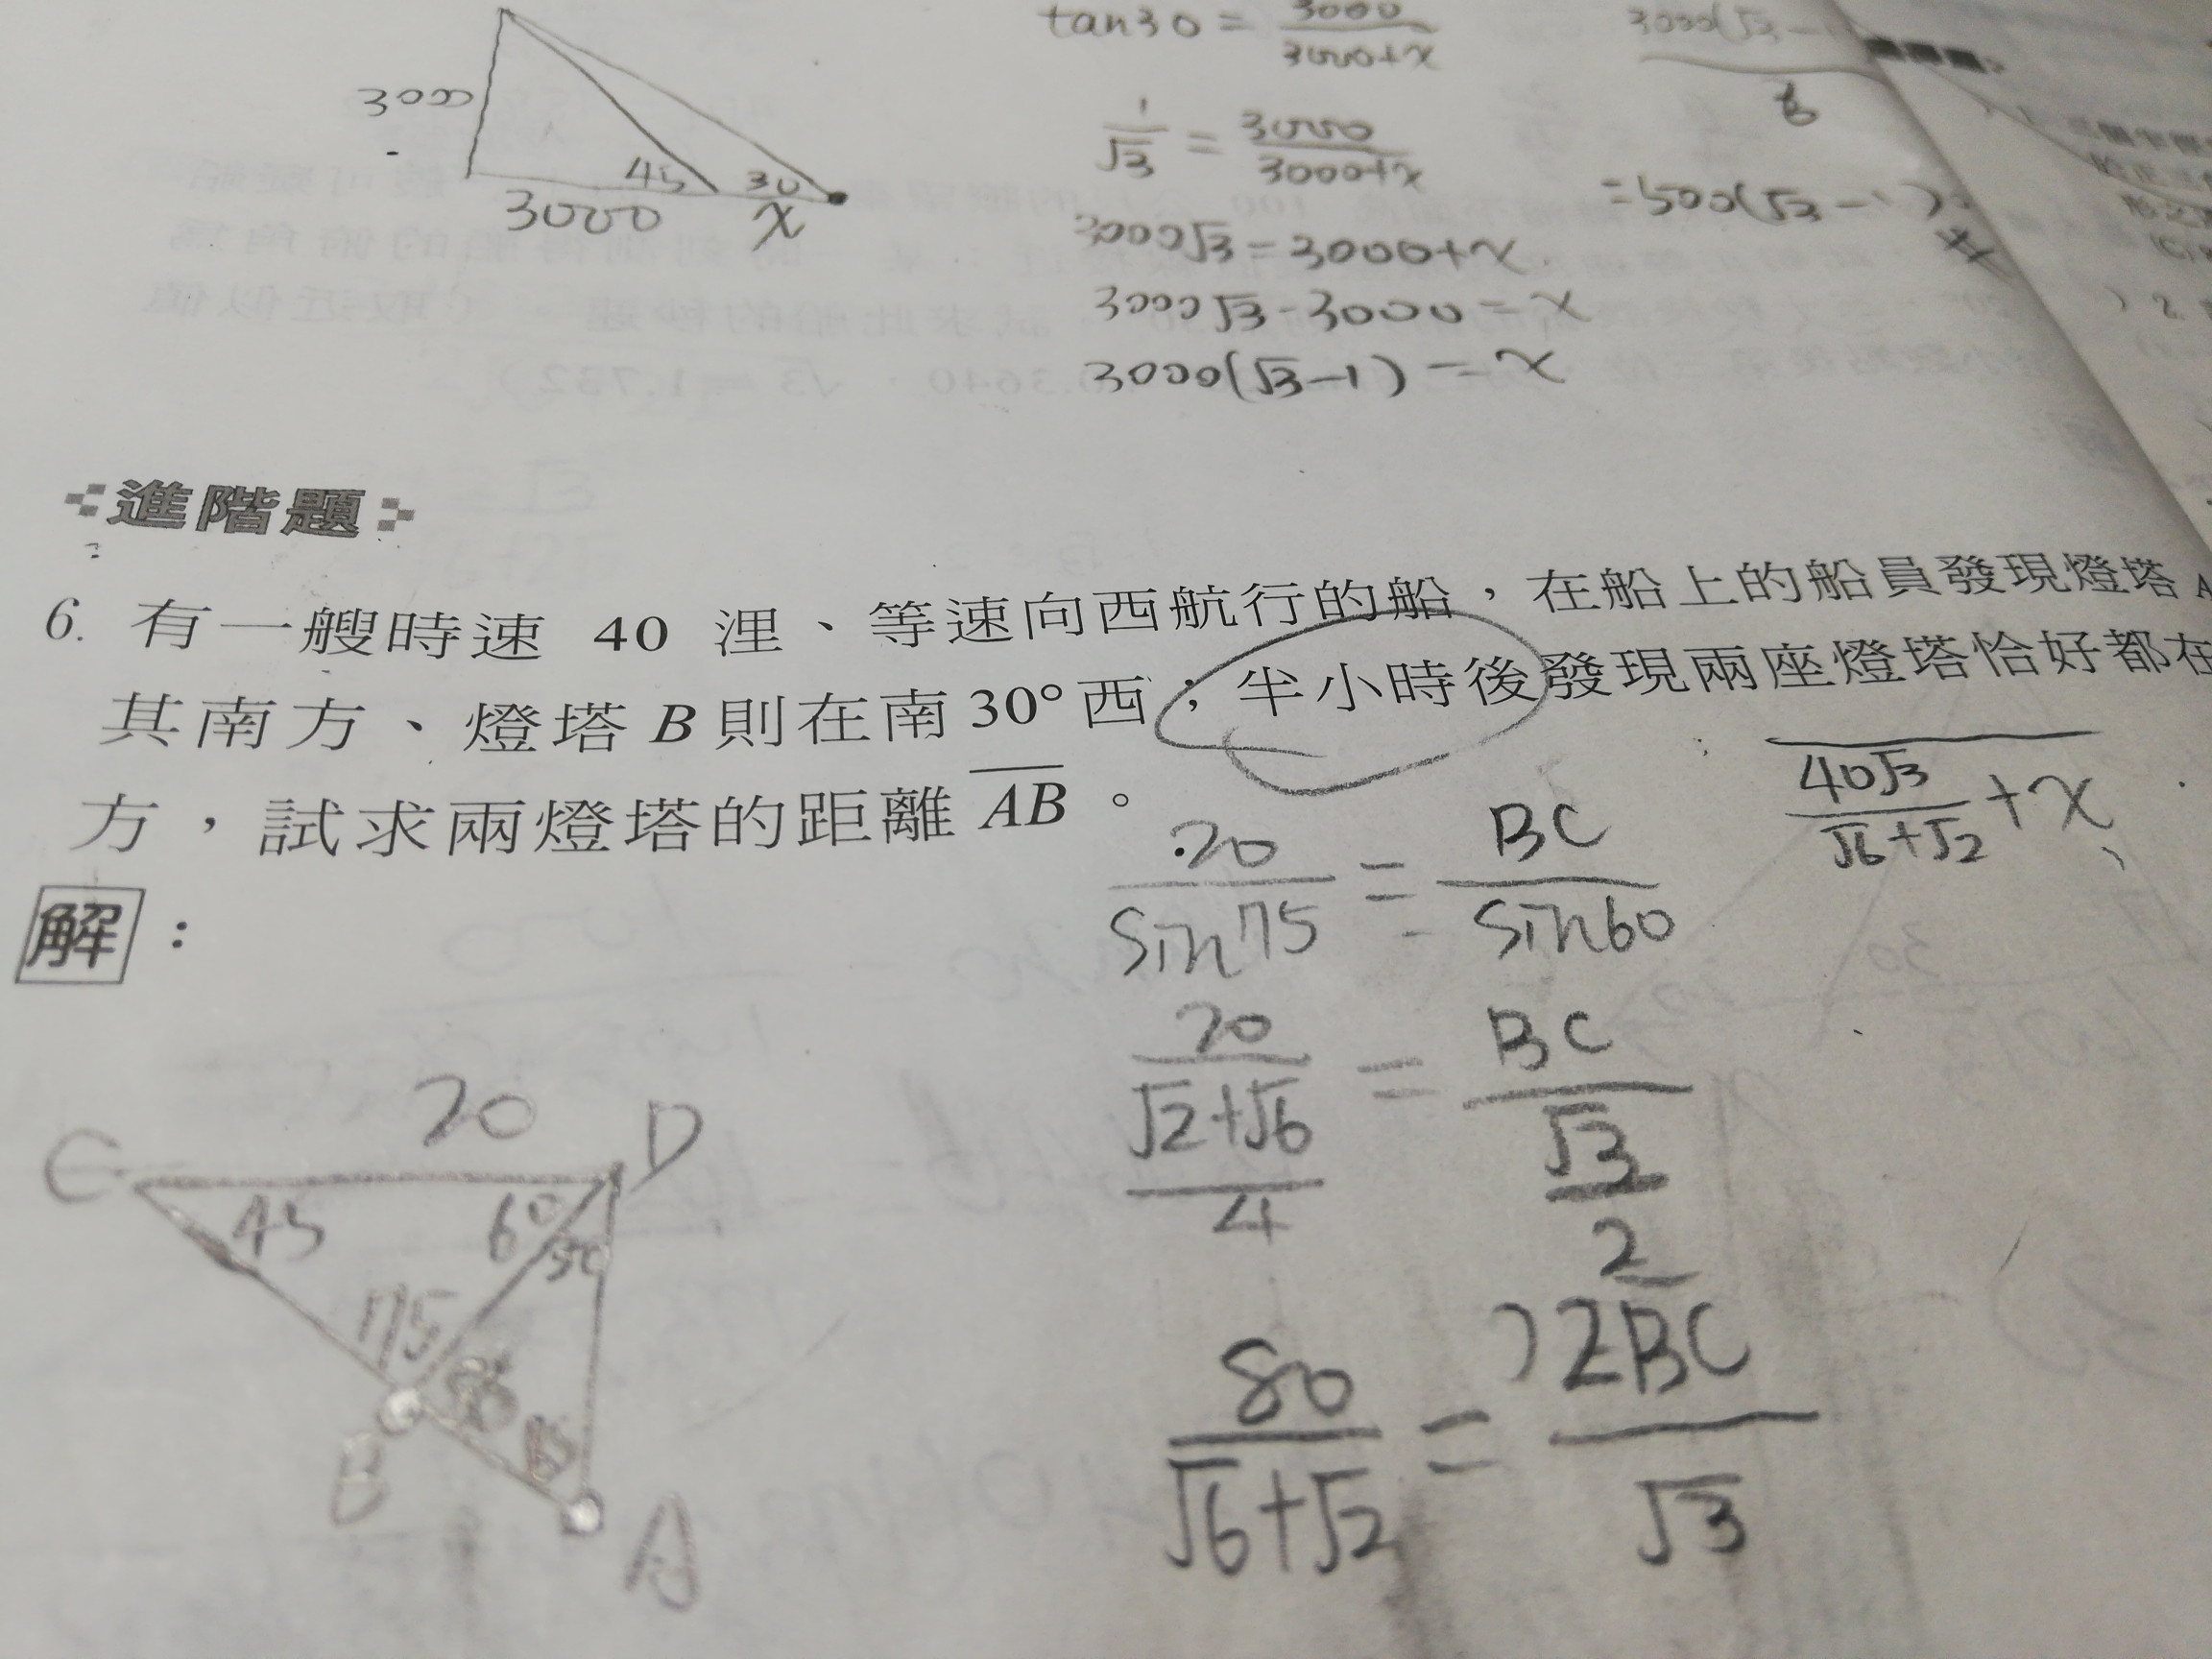 3000
45
30
3000
x
tan30 = 3000/3000+x
1/√3 = 3000/3000+x
3000√3 = 3000+x
3000√3-3000 = x
3000(√3-1) = x
=500(√3-1)
進階題
6. 有一艘時速 40 浬、等速向西航行的船，在船上的船員發現燈塔 A
其南方、燈塔 B 則在南 30° 西；半小時後發現兩座燈塔恰好都在
方，試求兩燈塔的距離 AB。
40√3/√6+√2 + x
解：
20/sin75 = BC/sin60
20/(√2+√6/4) = BC/(√3/2)
80/√6+√2 = 2BC/√3
20
C
D
45
60
75
B
A